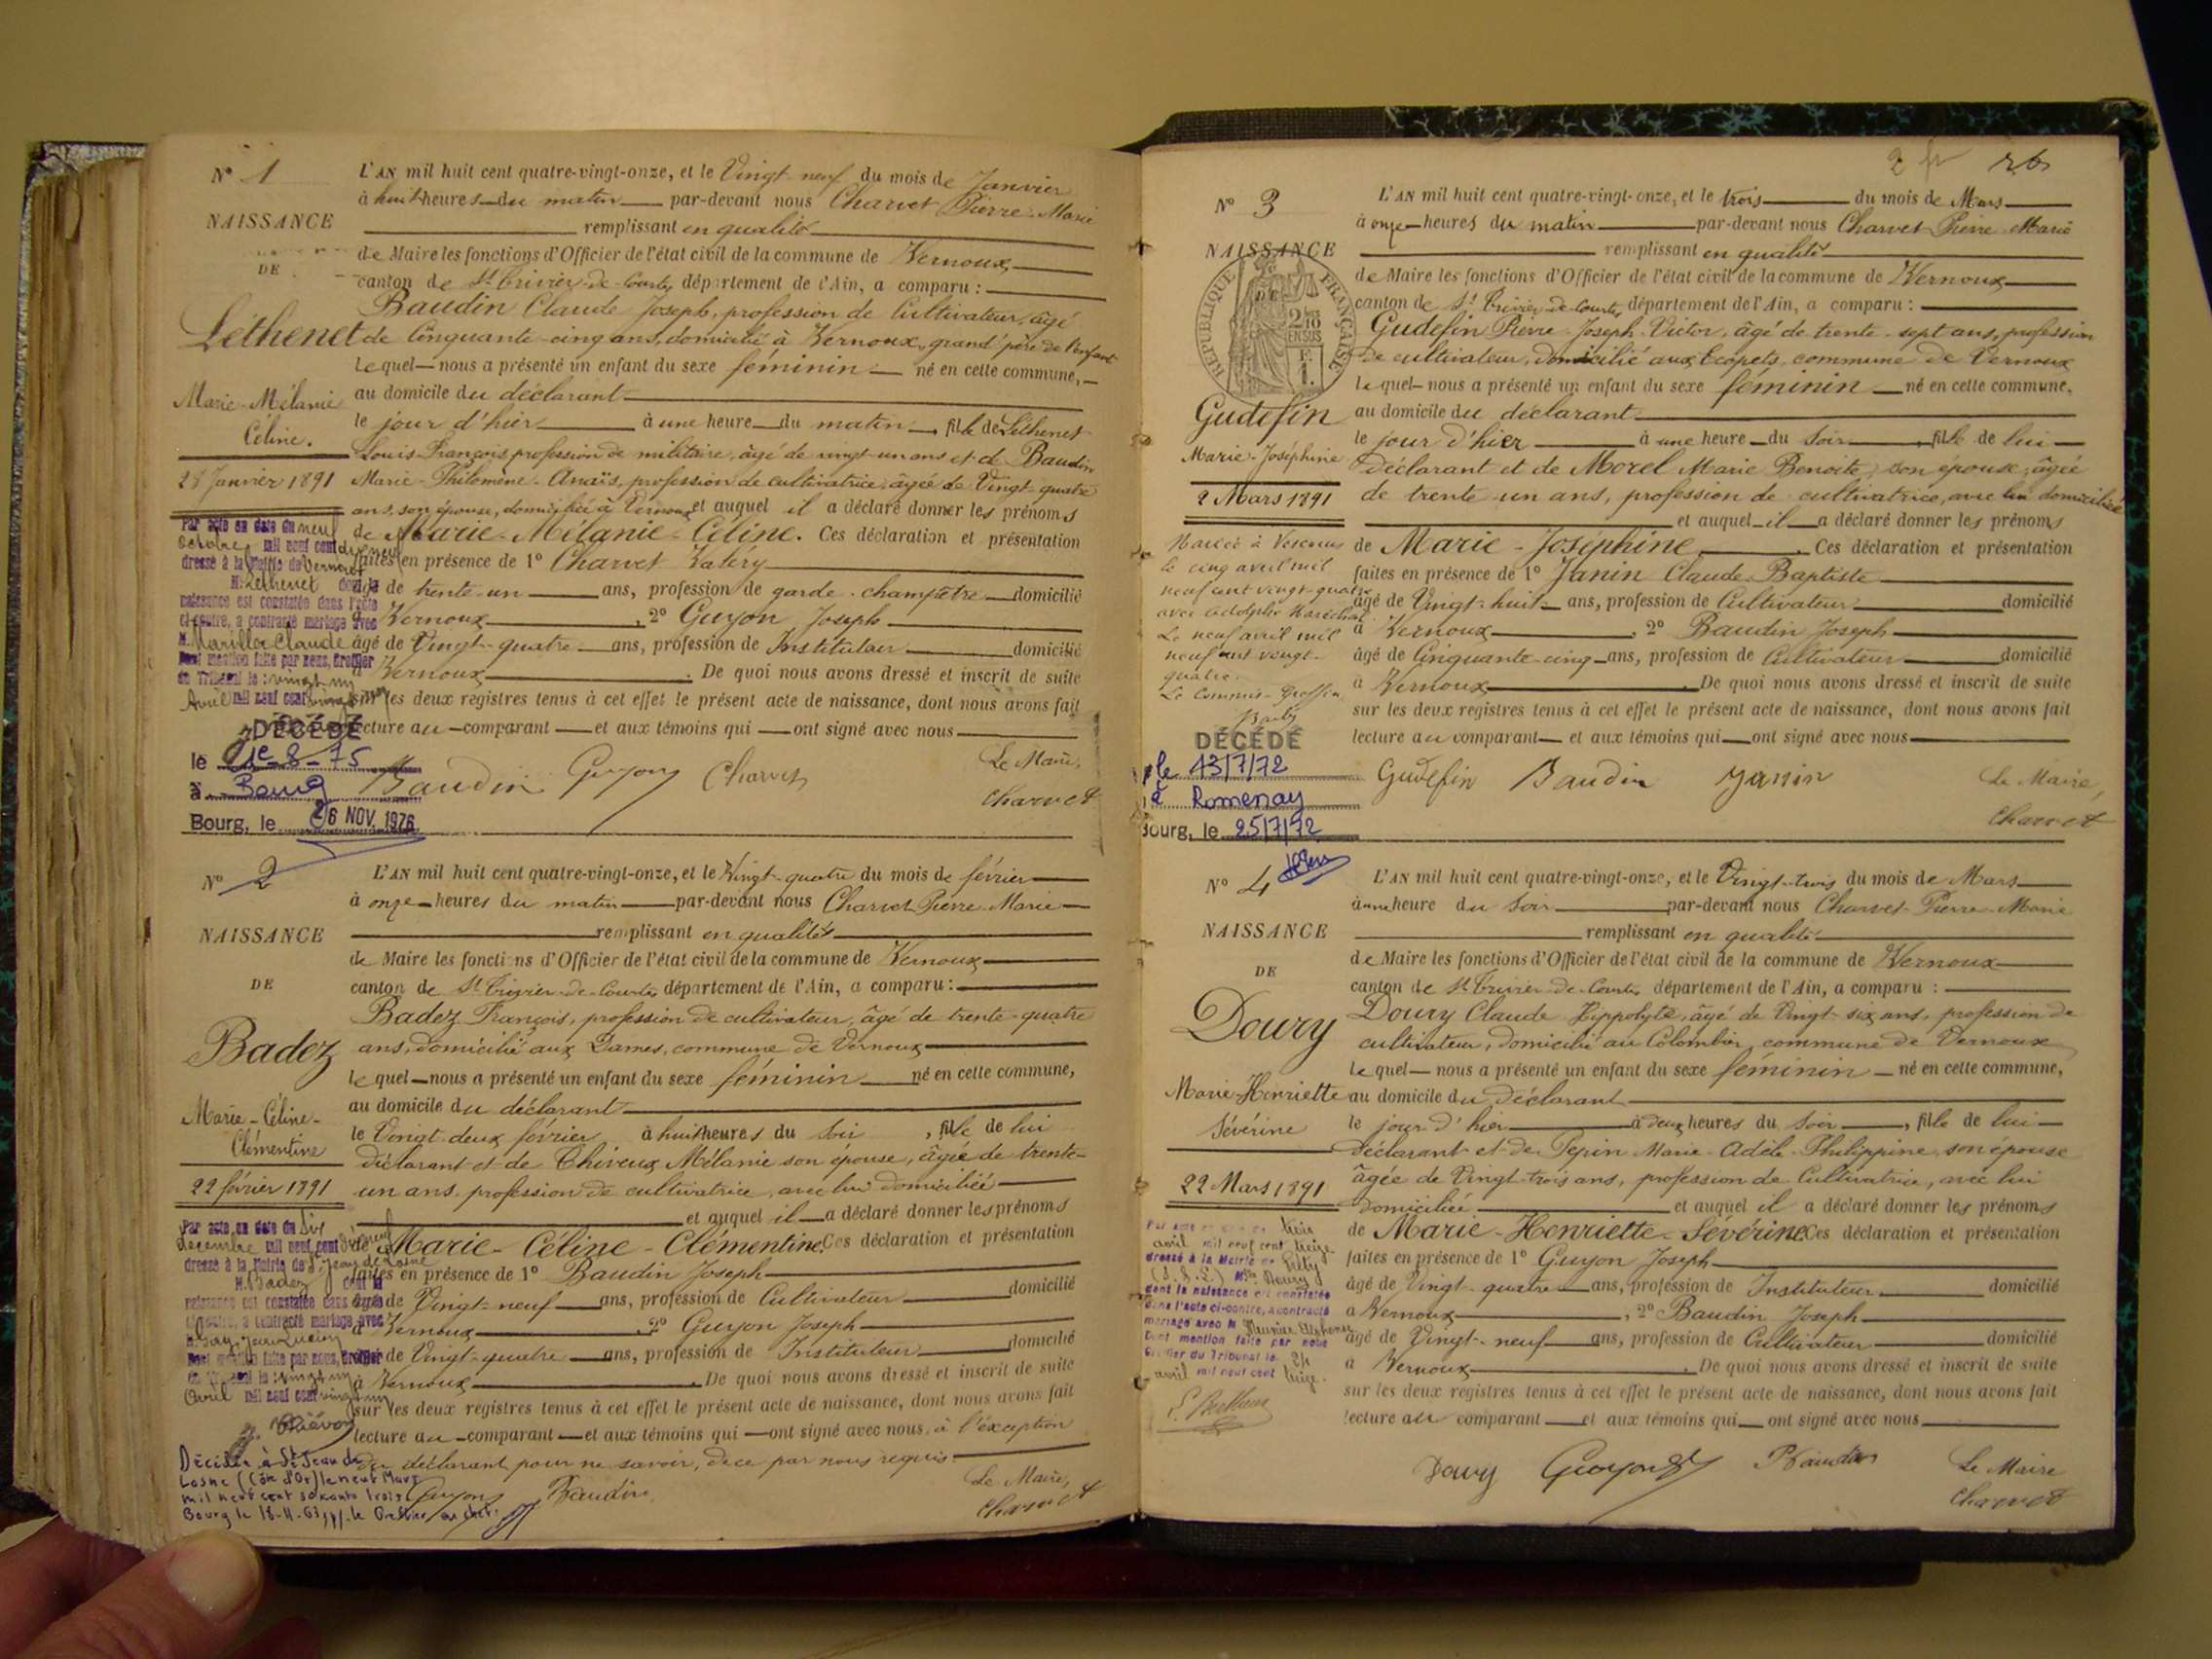 N° 1
NAISSANCE
DE
Léthenet
Marie-Mélanie
Céline.
28 Janvier 1891
Par acte en date du neuf
Octobre mil neuf cent dix neuf
dressé à la Mairie de Vernoux
M. Lethenet dont la
naissance est constatée dans l'acte
ci-contre, a contracté mariage avec
M. Mariller Claude
Dont mention faite par nous, Greffier
du Tribunal le : vingt un
Avril mil neuf cent vingt un
DÉCÉDÉ
le 1e-8-75
à Bourg
Bourg, le 26 NOV. 1976
L'AN mil huit cent quatre-vingt-onze, et le Vingt-neuf du mois de Janvier
à huit heures du matin par-devant nous Charvet Pierre-Marie
remplissant en qualité
de Maire les fonctions d'Officier de l'état civil de la commune de Vernoux
canton de St Trivier-de-Courtes, département de l'Ain, a comparu :
Baudin Claude Joseph, profession de Cultivateur, âgé
de Cinquante-cinq ans, domicilié à Vernoux, grand'père de l'enfant
Lequel nous a présenté un enfant du sexe féminin né en cette commune,
au domicile du déclarant
le jour d'hier à une heure du matin, fille de Léthenet
Louis-François profession de militaire, âgé de vingt-un ans et de Baudin
Marie-Philomène-Anaïs, profession de cultivatrice, âgée de Vingt-quatre
ans, son épouse, domiciliée à Vernoux et auquel il a déclaré donner les prénoms
de Marie-Mélanie-Céline. Ces déclaration et présentation
faites en présence de 1° Charvet Valéry
âgé de trente-un ans, profession de garde-champêtre domicilié
à Vernoux, 2° Guyon Joseph
âgé de Vingt-quatre ans, profession de Instituteur domicilié
à Vernoux. De quoi nous avons dressé et inscrit de suite
sur les deux registres tenus à cet effet le présent acte de naissance, dont nous avons fait
lecture au comparant et aux témoins qui ont signé avec nous
Baudin Guyon Charvet Le Maire,
Charvet
N° 2
NAISSANCE
DE
Badez
Marie-Céline-
Clémentine
22 février 1891
Par acte en date du Six
décembre mil neuf cent dix neuf
dressé à la Mairie de St Jean de Losne
M. Badez dont la
naissance est constatée dans l'acte
ci-contre, a contracté mariage avec
M. Gay Jean Lucien
Dont mention faite par nous, Greffier
du Tribunal le : vingt un
Avril mil neuf cent vingt un
Décédée à St Jean de
Losne (Côte d'Or) le neuf Mars
mil neuf cent soixante trois
Bourg le 18-11-63, le Greffier en chef.
L'AN mil huit cent quatre-vingt-onze, et le Vingt-quatre du mois de février
à onze heures du matin par-devant nous Charvet Pierre-Marie
remplissant en qualité
de Maire les fonctions d'Officier de l'état civil de la commune de Vernoux
canton de St Trivier-de-Courtes, département de l'Ain, a comparu :
Badez François, profession de cultivateur, âgé de trente-quatre
ans, domicilié aux Dames, commune de Vernoux
lequel nous a présenté un enfant du sexe féminin né en cette commune,
au domicile du déclarant
le Vingt-deux février à huit heures du soir, fille de lui
déclarant et de Chiveux Mélanie son épouse, âgée de trente-
un ans, profession de cultivatrice, avec lui domiciliée
et auquel il a déclaré donner les prénoms
de Marie-Céline-Clémentine. Ces déclaration et présentation
faites en présence de 1° Baudin Joseph
âgé de Vingt-neuf ans, profession de Cultivateur domicilié
à Vernoux, 2° Guyon Joseph
âgé de Vingt-quatre ans, profession de Instituteur domicilié
à Vernoux. De quoi nous avons dressé et inscrit de suite
sur les deux registres tenus à cet effet le présent acte de naissance, dont nous avons fait
lecture au comparant et aux témoins qui ont signé avec nous, à l'éxception
du déclarant pour ne savoir, de ce par nous requis
Guyon Baudin Le Maire,
Charvet
26
N° 3
NAISSANCE
DE
RÉPUBLIQUE FRANÇAISE
2/10 EN SUS
Gudefin
Marie-Joséphine
2 Mars 1891
Mariée à Vescours
le cinq avril mil
neuf cent vingt-quatre
avec Adolphe Maréchal
Le neuf avril mil
neuf cent vingt-
quatre.
Le Commis-Greffier
DÉCÉDÉ
le 13/7/72
à Romenay
Bourg, le 25/7/72
L'AN mil huit cent quatre-vingt-onze, et le trois du mois de Mars
à onze heures du matin par-devant nous Charvet Pierre-Marie
remplissant en qualité
de Maire les fonctions d'Officier de l'état civil de la commune de Vernoux
canton de St Trivier-de-Courtes, département de l'Ain, a comparu :
Gudefin Pierre-Joseph-Victor, âgé de trente-sept ans, profession
de cultivateur, domicilié aux Ecopets, commune de Vernoux
lequel nous a présenté un enfant du sexe féminin né en cette commune,
au domicile du déclarant
le jour d'hier à une heure du soir, fille de lui
déclarant et de Morel Marie Benoite, son épouse, âgée
de trente-un ans, profession de cultivatrice, avec lui domiciliée
et auquel il a déclaré donner les prénoms
de Marie-Joséphine. Ces déclaration et présentation
faites en présence de 1° Janin Claude-Baptiste
âgé de Vingt-huit ans, profession de Cultivateur domicilié
à Vernoux, 2° Baudin Joseph
âgé de Cinquante-cinq ans, profession de Cultivateur domicilié
à Vernoux. De quoi nous avons dressé et inscrit de suite
sur les deux registres tenus à cet effet le présent acte de naissance, dont nous avons fait
lecture au comparant et aux témoins qui ont signé avec nous
Gudefin Baudin Janin Le Maire,
Charvet
N° 4
NAISSANCE
DE
Doury
Marie-Henriette
Sévérine
22 Mars 1891
Par acte en date du trois
avril mil neuf cent treize
dressé à la Mairie de
(S.&L.) Mlle Doury
dont la naissance est constatée
dans l'acte ci-contre, a contracté
mariage avec M Meunier Alphonse
Dont mention faite par nous
Greffier du Tribunal le 24
avril mil neuf cent treize.
L'AN mil huit cent quatre-vingt-onze, et le Vingt-trois du mois de Mars
à une heure du soir par-devant nous Charvet Pierre-Marie
remplissant en qualité
de Maire les fonctions d'Officier de l'état civil de la commune de Vernoux
canton de St Trivier-de-Courtes, département de l'Ain, a comparu :
Doury Claude Hippolyte, âgé de Vingt-six ans, profession de
cultivateur, domicilié au Colombier, commune de Vernoux
Lequel nous a présenté un enfant du sexe féminin né en cette commune,
au domicile du déclarant
le jour d'hier à deux heures du soir, fille de lui
déclarant et de Pepin Marie-Adèle-Philippine, son épouse
âgée de Vingt-trois ans, profession de Cultivatrice, avec lui
domiciliée. et auquel il a déclaré donner les prénoms
de Marie-Henriette-Sévérine. Ces déclaration et présentation
faites en présence de 1° Guyon Joseph
âgé de Vingt-quatre ans, profession de Instituteur domicilié
à Vernoux, 2° Baudin Joseph
âgé de Vingt-neuf ans, profession de Cultivateur domicilié
à Vernoux. De quoi nous avons dressé et inscrit de suite
sur les deux registres tenus à cet effet le présent acte de naissance, dont nous avons fait
lecture au comparant et aux témoins qui ont signé avec nous
Doury Guyon Baudin Le Maire
Charvet